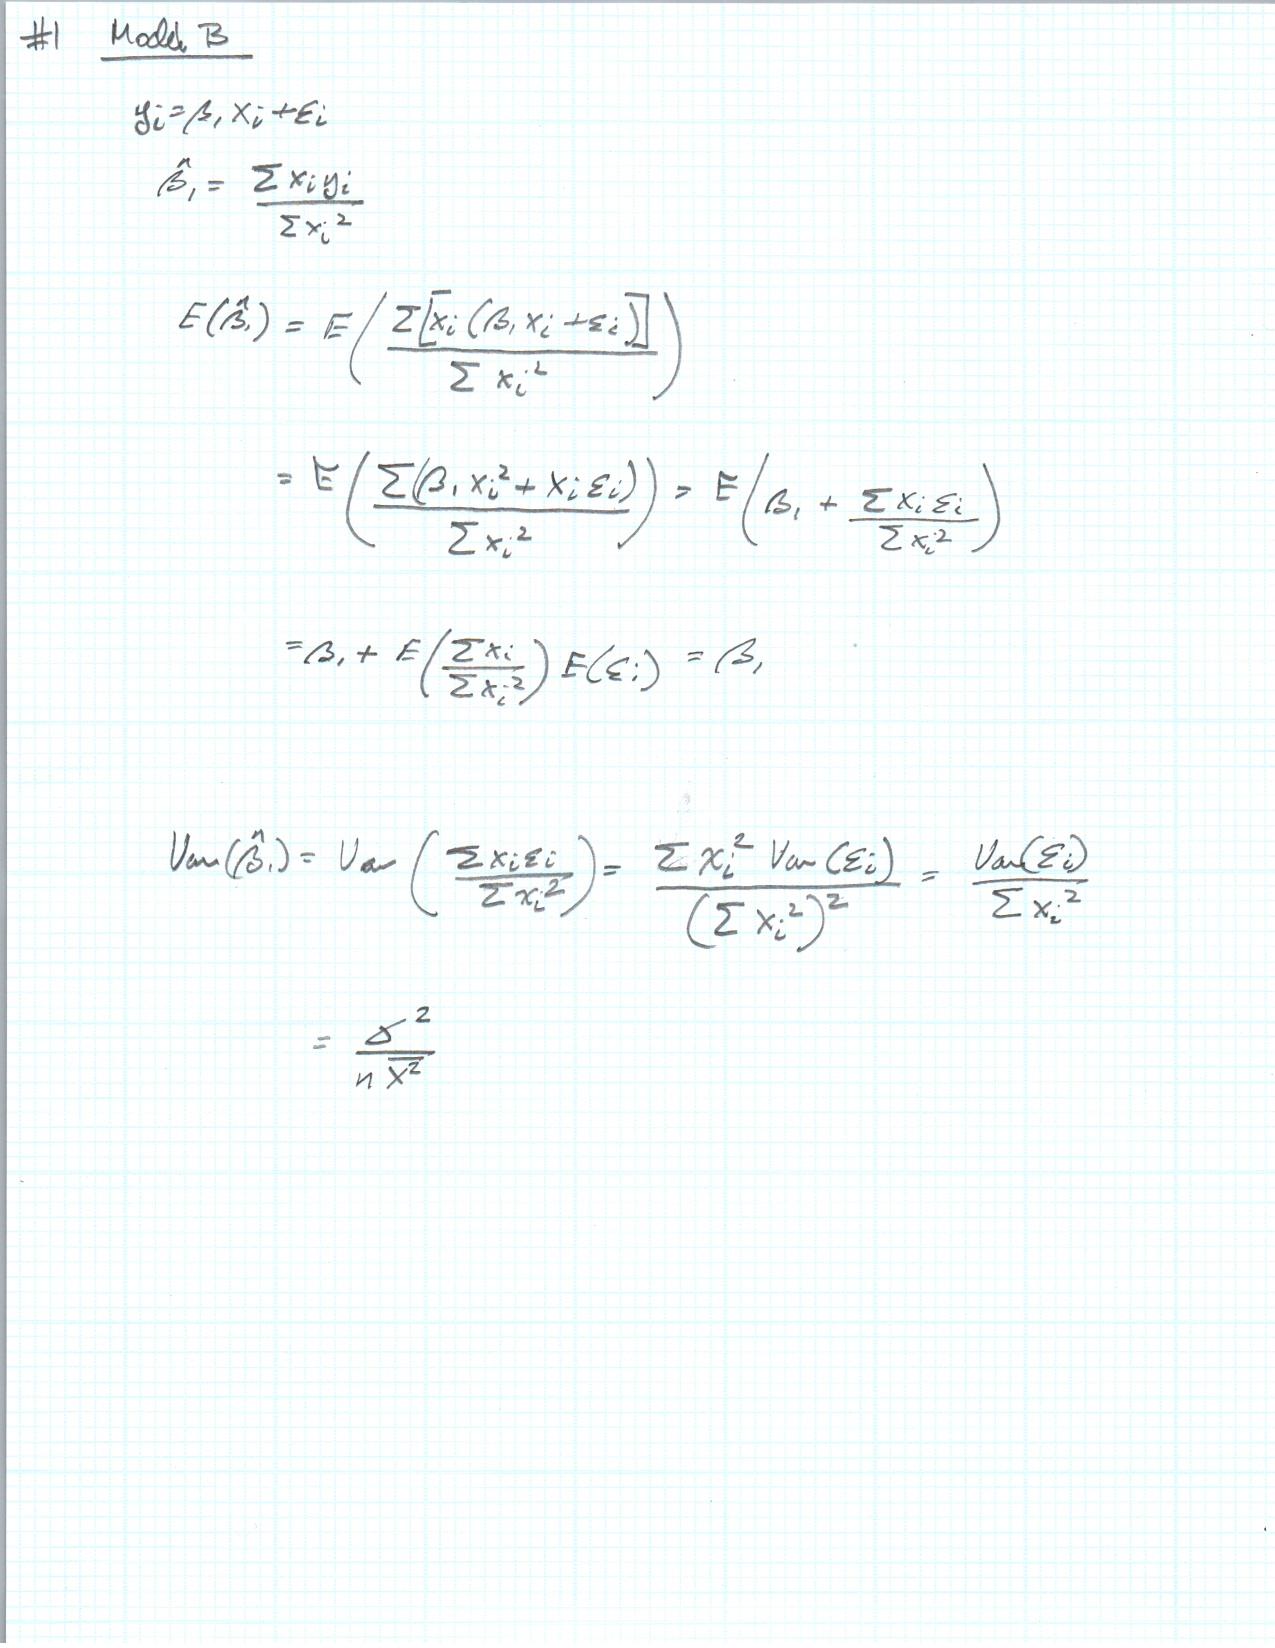 #1 Model B
yi = β₁ xi + εi
β̂₁ = Σ xi yi / Σ xi²
E(β̂₁) = E( Σ[xi (β₁ xi + εi)] / Σ xi² )
= E( Σ(β₁ xi² + xi εi) / Σ xi² ) = E( β₁ + Σ xi εi / Σ xi² )
= β₁ + E( Σ xi / Σ xi² ) E(εi) = β₁
Var(β̂₁) = Var( Σ xi εi / Σ xi² ) = Σ xi² Var(εi) / (Σ xi²)² = Var(εi) / Σ xi²
= σ² / n x̅²̅